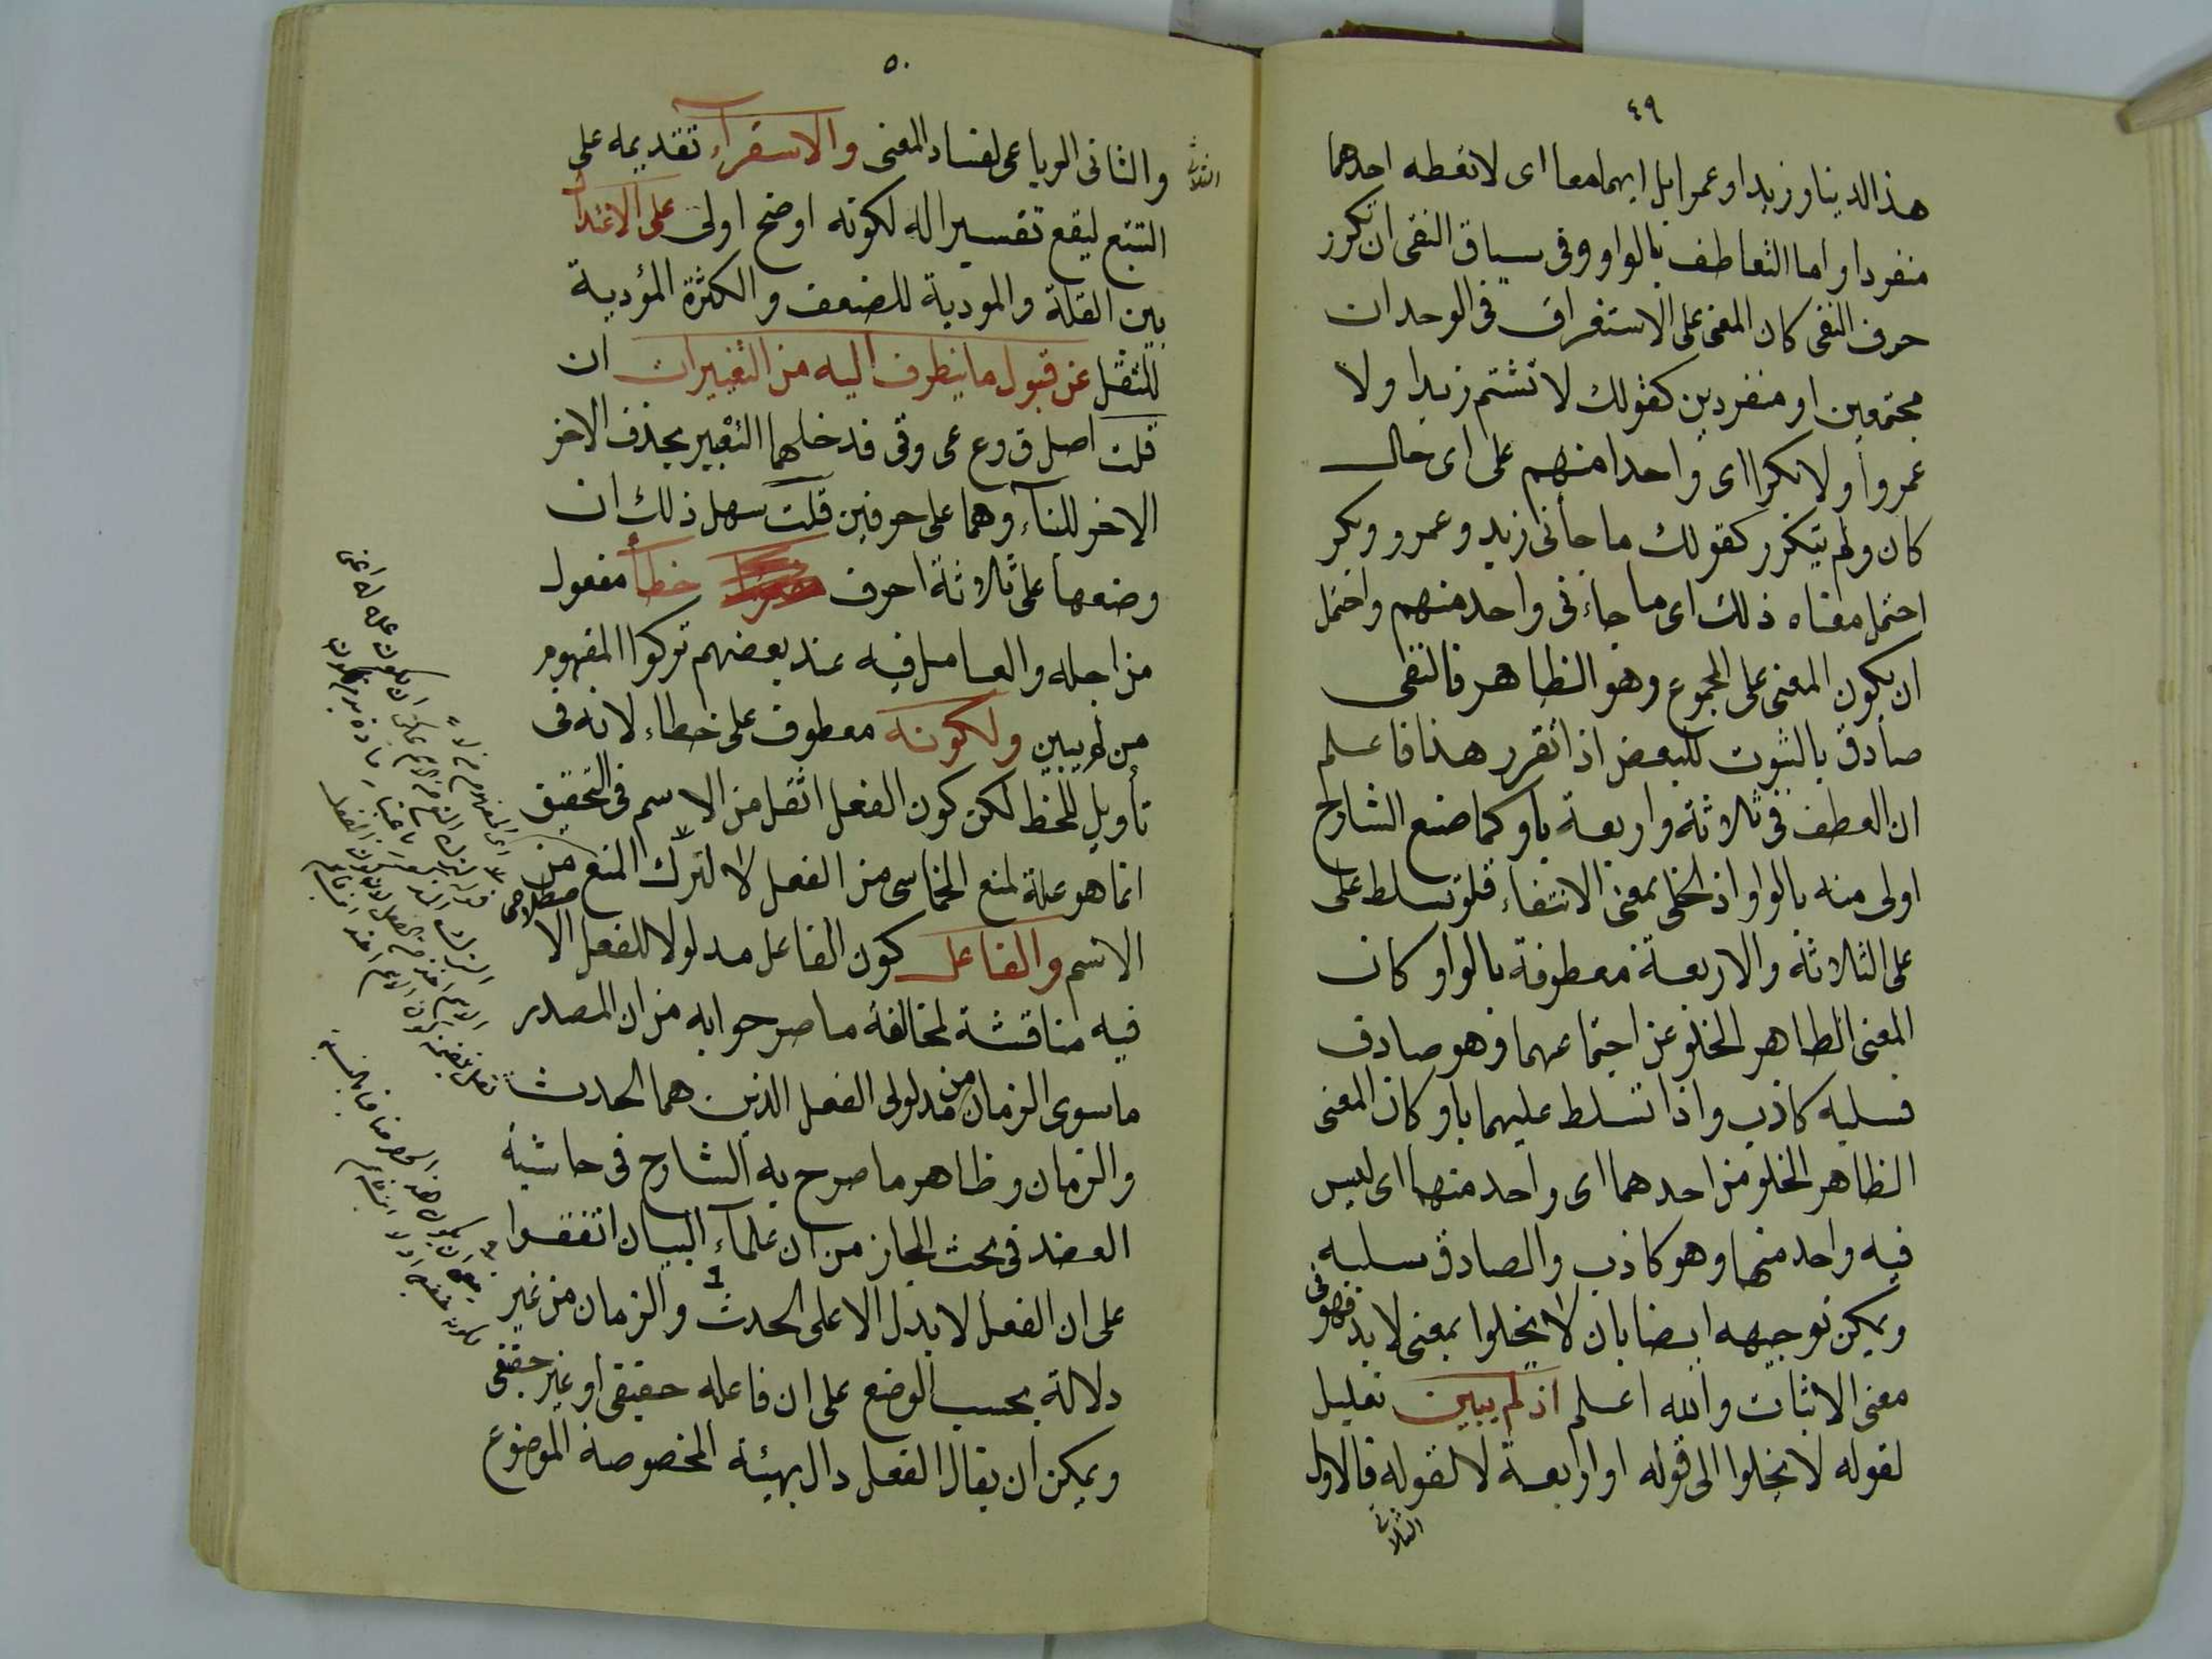 ٤٩
هذا الدينار زيدا او عمرا بل ايهما معا اى لا تعطه احدهما
منفردا واما التعاطف بالواو وفى سياق النفى ان تكرر
حرف النفى كان المعنى على الاستغراق فى الوحدان
مجتمعين او منفردين كقولك لا تشتم زيدا ولا
عمروا ولا بكرا اى واحدا منهم على اى حال
كان ولم يتكرر كقولك ما جأنى زيد وعمرو وبكر
احتمل معناه ذلك اى ما جاءنى واحد منهم واحتمل
ان يكون المعنى على المجموع وهو الظاهر فالنفى
صادق بالثبوت للبعض اذا تقرر هذا فاعلم
ان العطف فى ثلاثة واربعة باو كما صنع الشارح
اولى منه بالواو اذ الخلى بمعنى الانتفاء فلو تسلط على
على الثلاثة والاربعة معطوفة بالواو كان
المعنى الظاهر الخلو عن اجتماعهما وهو صادق
فسلبه كاذب واذا تسلط عليهما باو كان المعنى
الظاهر الخلو من احدهما اى واحد منهما اى ليس
فيه واحد منهما وهو كاذب والصادق سلبه
ويمكن توجيهه ايضا بان لا يخلوا بمعنى لا بد فهو فى
معنى الاثبات والله اعلم اذ لم يبين تعليل
لقوله لا يخلوا الى قوله او اربعة لا لقوله فالاول
الثلاثى
٥٠
الثلاثى
والثانى الرباعى لفساد المعنى والاستقرآء تقديمه على
التتبع ليقع تفسيرا له لكونه اوضح اولى على الاعتدال
بين القلة والمودية للضعف والكثرة المؤدية
للثقل عن قبول ما يتطرف اليه من التغييرات ان
قلت اصل ق وع عى وقى فدخلهما التغيير بحذف الاخر
الاخر للبنآء وهما على حرفين قلت سهل ذلك ان
وضعها على ثلاثة احرف خطأ مفعول
من اجله والعامل فيه عند بعضهم تركوا المفهوم
من لم يبين ولكونه معطوف على خطاء لانه فى
تأويل للخط لكن كون الفعل اثقل من الاسم فى التحقيق
انما هو علة لمنع الخماسى من الفعل لا لترك المنع من
الاسم والفاعل كون الفاعل مدلولا للفعل الاصطلاحى
فيه مناقشة لمخالفة ما صرحوا به من ان المصدر
ما سوى الزمان من مدلولى الفعل الذين هما الحدث
والزمان وظاهر ما صرح به الشارح فى حاشية
العضد فى بحث المجاز من ان علمآء البيان اتفقوا
على ان الفعل لا يدل الا على الحدث والزمان من غير
دلالة بحسب الوضع على ان فاعله حقيقى او غير حقيقى
ويمكن ان يقال الفعل دال بهيئة المخصوصة الموضوع